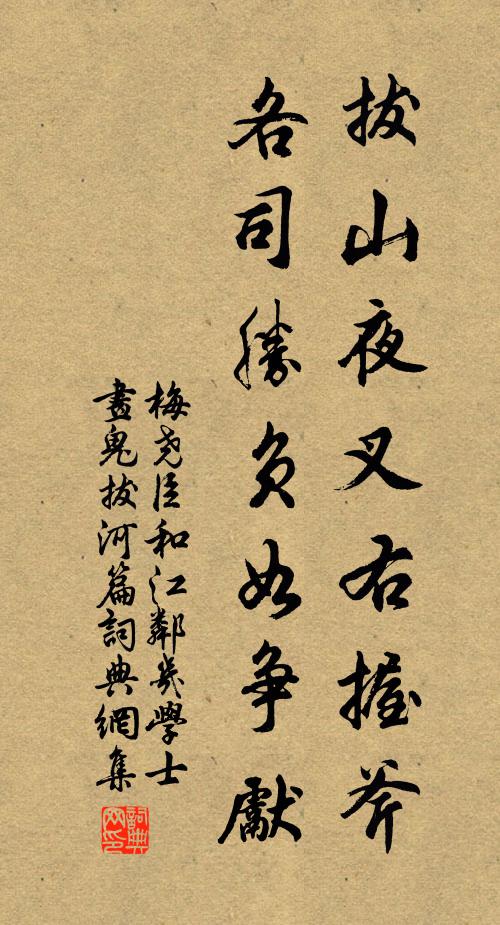 拔山夜叉右握斧
各司勝負如爭獻
梅堯臣和江鄰幾學士
畫鬼拔河篇詞典網集
詞典
网印